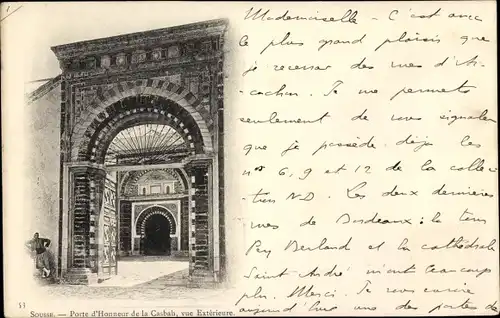 Mademoiselle - C'est avec
le plus grand plaisir que
je recevrai des vues d'Ar-
cachon. Je me permets
seulement de vous signaler
que je possède déjà les
nos 6, 9 et 12 de la collec-
tion ND. Les deux dernières
vues de Bordeaux : la tour
Pey Berland et la cathédrale
Saint André m'ont beaucoup
plu. Merci. Je vous envoie
aujourd'hui une des portes de
53
SOUSSE. — Porte d'Honneur de la Casbah, vue Extérieure.